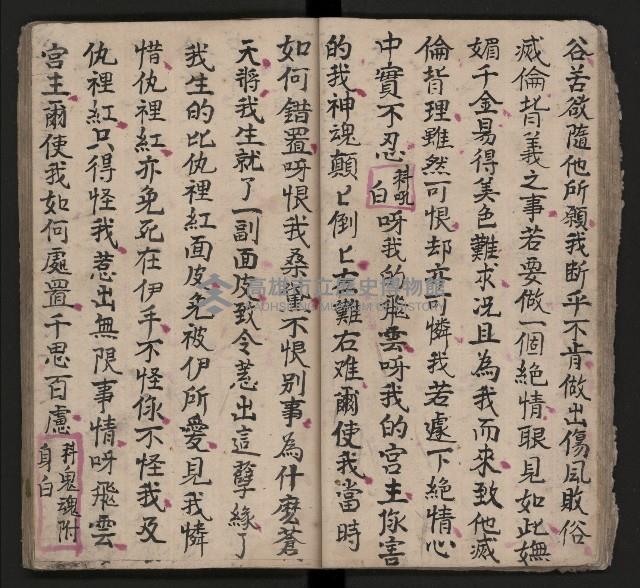 谷若欲隨他所願我断乎不肯做出傷風敗俗
滅倫背義之事若要做一個絕情眼見如此嫵
媚千金易得美色難求况且為我而來致他滅
倫背理雖然可恨却亦可憐我若遽下絕情心
中實不忍
科吼
白
呀我的飛雲呀我的宮主你害
的我神魂顛匕倒匕左難右难爾使我當時
如何錯置呀恨我桑不恨别事為什麽蒼
天將我生就了一副面皮致令惹出這孽緣了
我生的比仇裡紅面皮免被伊所愛見我憐
惜仇裡紅亦免死在伊手不怪你不怪我及
仇裡紅只得怪我惹出無限事情呀飛雲
宮主爾使我如何處置千思百慮
科鬼魂附
身白
高雄市立歷史博物館
KAOHSIUNG MUSEUM OF HISTORY